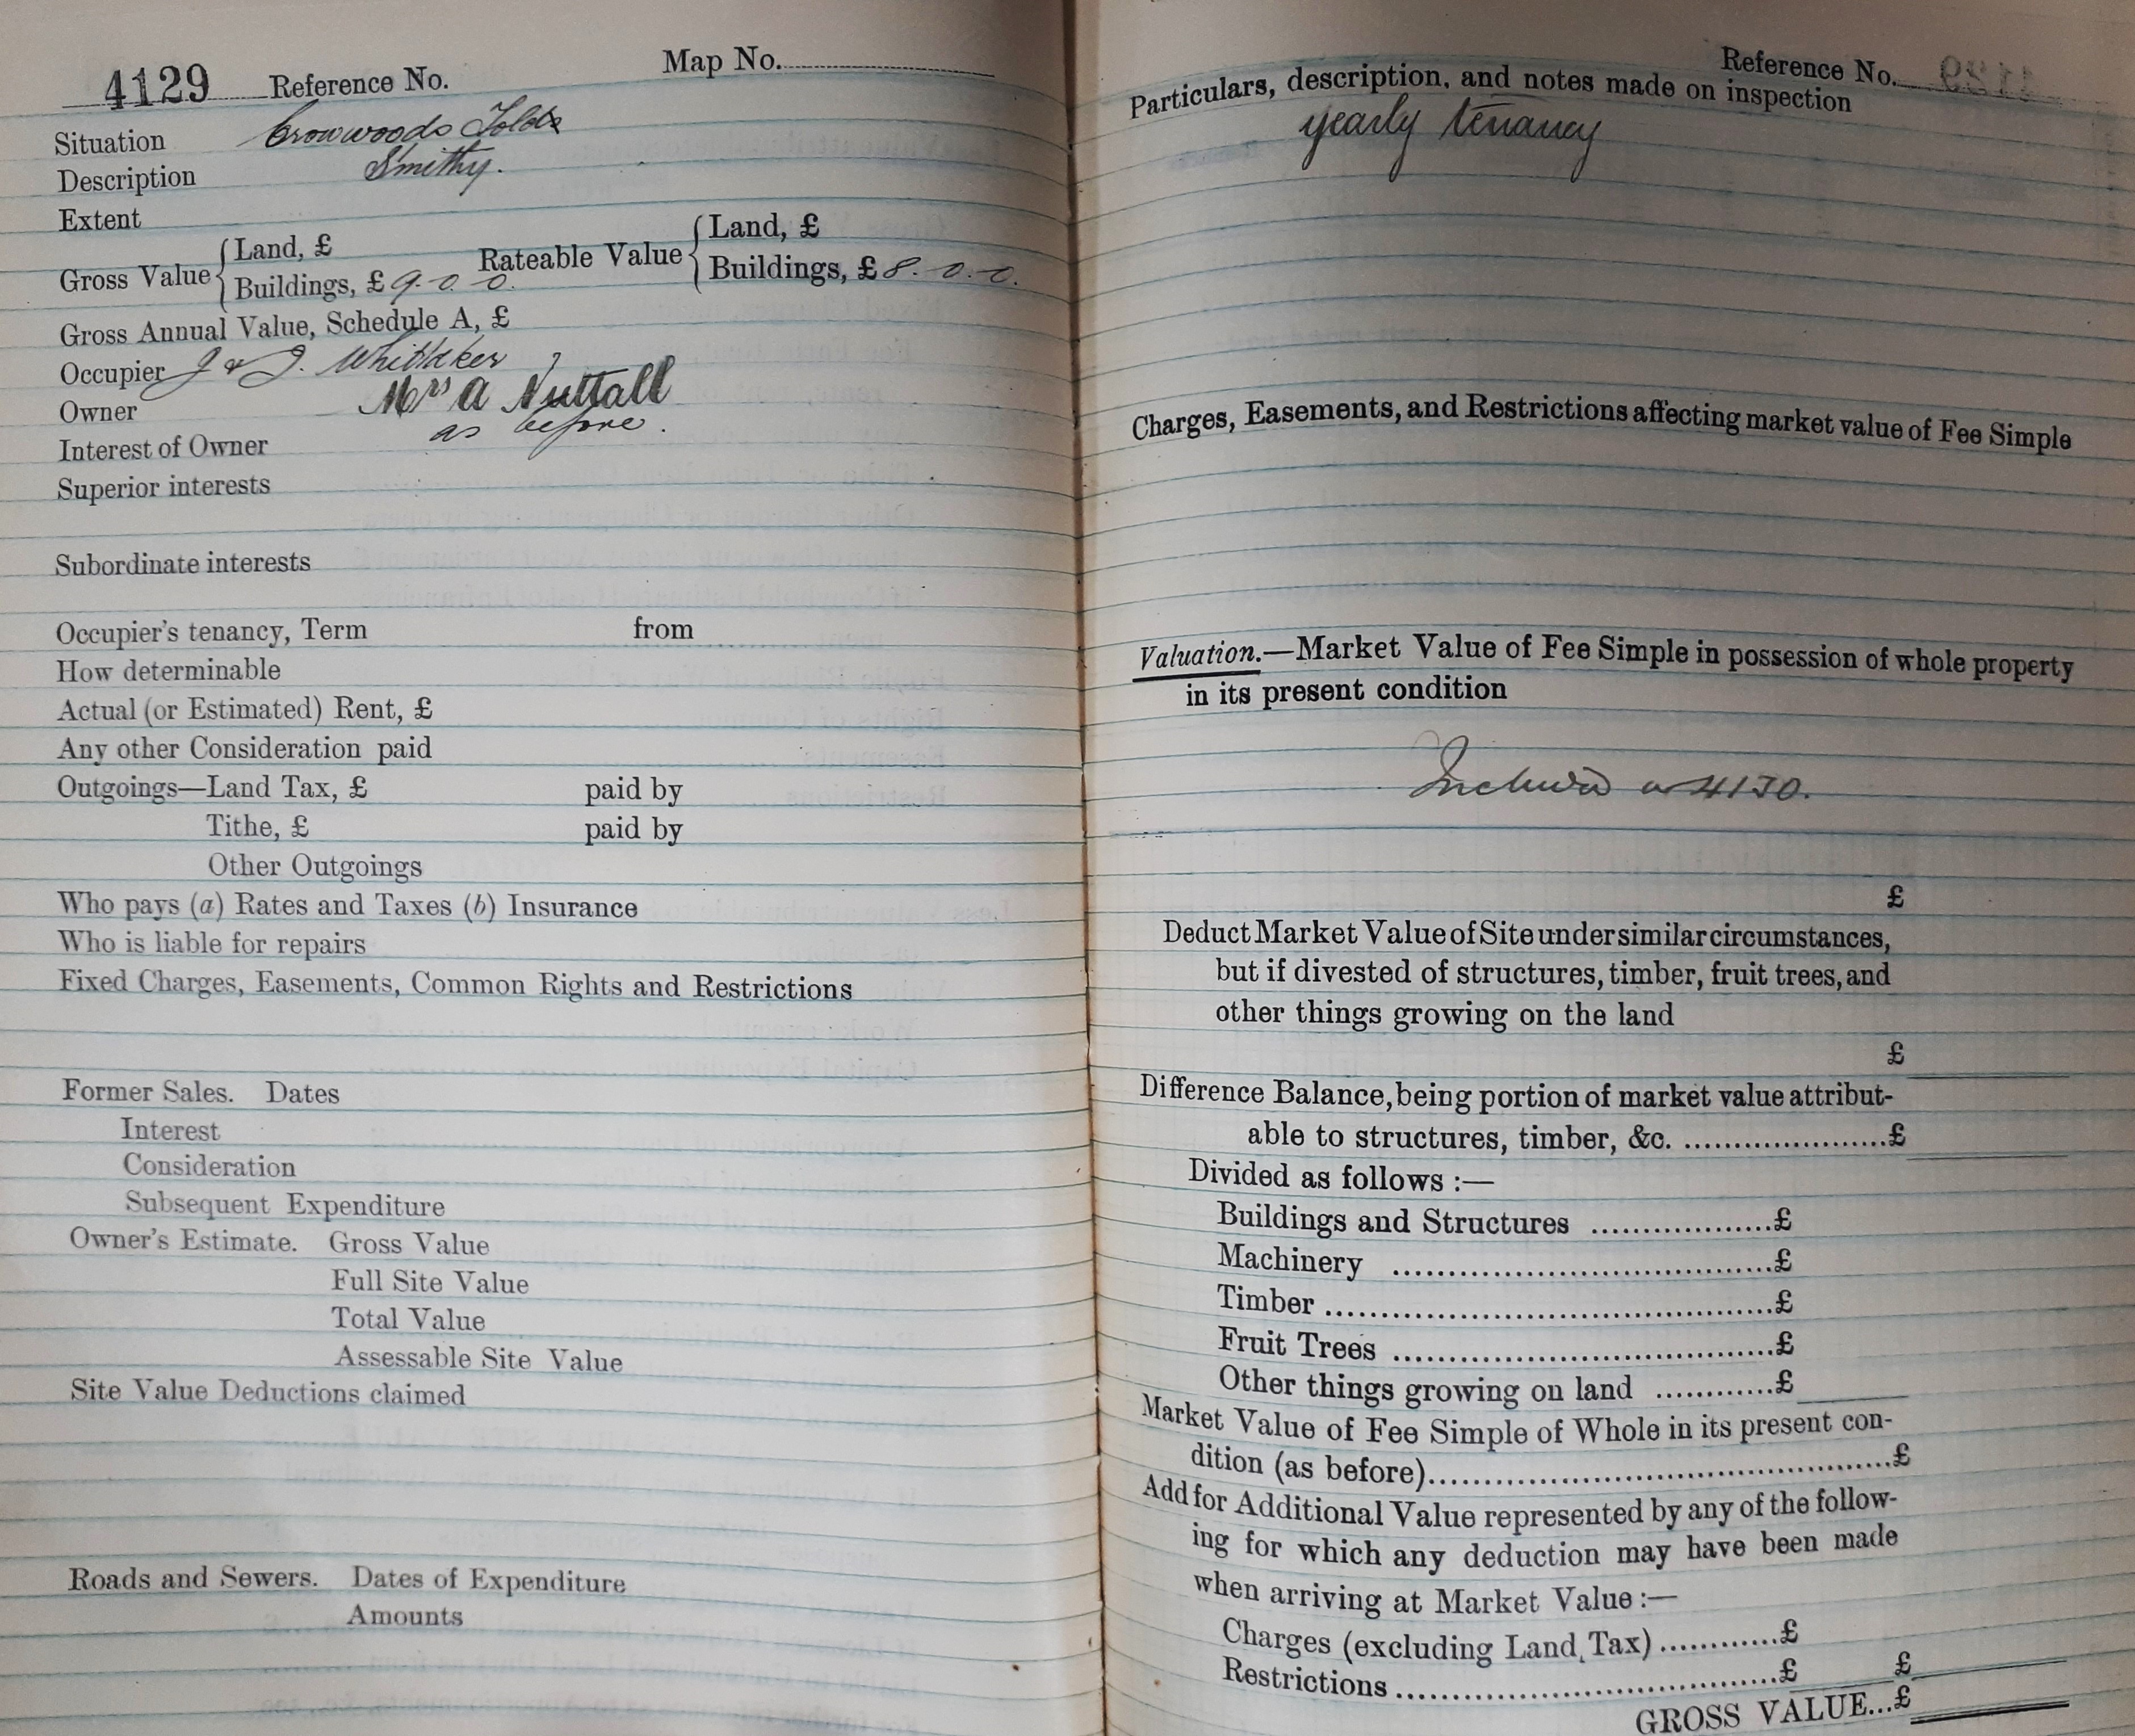 4129 Reference No. Map No.
Situation Crowwoods Folds
Description Smithy.
Extent
Gross Value { Land, £ Rateable Value { Land, £
Buildings, £ 9-0-0. Buildings, £ 8-0-0.
Gross Annual Value, Schedule A, £
Occupier J & J. Whittaker
Owner Mrs A Nuttall
Interest of Owner as before.
Superior interests
Subordinate interests
Occupier's tenancy, Term from
How determinable
Actual (or Estimated) Rent, £
Any other Consideration paid
Outgoings—Land Tax, £ paid by
Tithe, £ paid by
Other Outgoings
Who pays (a) Rates and Taxes (b) Insurance
Who is liable for repairs
Fixed Charges, Easements, Common Rights and Restrictions
Former Sales. Dates
Interest
Consideration
Subsequent Expenditure
Owner's Estimate. Gross Value
Full Site Value
Total Value
Assessable Site Value
Site Value Deductions claimed
Roads and Sewers. Dates of Expenditure
Amounts
Reference No.
Particulars, description, and notes made on inspection
yearly tenancy
Charges, Easements, and Restrictions affecting market value of Fee Simple
Valuation.—Market Value of Fee Simple in possession of whole property
in its present condition
Included in 4130.
£
Deduct Market Value of Site under similar circumstances,
but if divested of structures, timber, fruit trees, and
other things growing on the land
£
Difference Balance, being portion of market value attribut-
able to structures, timber, &c. .....................£
Divided as follows :—
Buildings and Structures ...................£
Machinery .......................................£
Timber .............................................£
Fruit Trees .......................................£
Other things growing on land ............£
Market Value of Fee Simple of Whole in its present con-
dition (as before)..............................................£
Add for Additional Value represented by any of the follow-
ing for which any deduction may have been made
when arriving at Market Value :—
Charges (excluding Land Tax) ............£
Restrictions .......................................£ £
GROSS VALUE...£